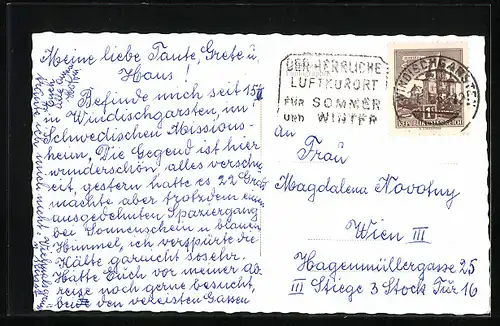 Meine liebe Tante, Grete u.
Hans!
Befinde mich seit 15./I.
in Windischgarsten, im
Schwedischen Missions-
heim. Die Gegend ist hier
wunderschön alles verschn
eit, gestern hatte es 22 Grad
machte aber trotzdem einen
ausgedehnten Spaziergang
bei Sonnenschein u. blauen
Himmel, ich verspürte die
Kälte garnicht so sehr.
Hätte Euch vor meiner Ab-
reise noch gerne besucht,
den vereisten Gassen
DER HERRLICHE
LUFTKURORT
FÜR SOMMER
UND WINTER
WINDISCHGARSTEN
REPUBLIK ÖSTERREICH
An
Frau
Magdalena Novotny
Wien III
Hagenmüllergasse 25
III Stiege 3 Stock Tür 16